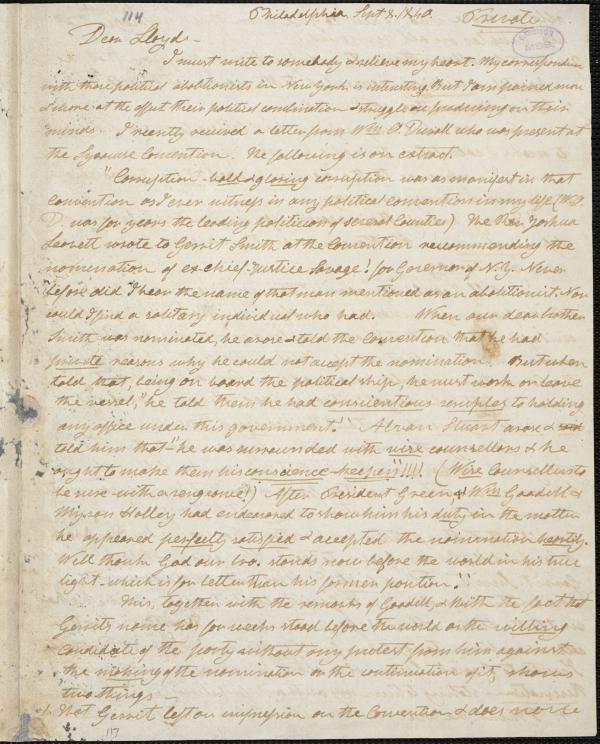 114
Philadelphia Sept 8. 1840.
Private
Dear Lloyd -
I must write to somebody & relieve my heart. My correspondence
with those political abolitionists in New York is interesting. But I am pained more
& more at the effect their political combination & struggle are producing on their
minds. I recently received a letter from Wm O. Duvall who was present at
the Syracuse Convention. The following is an extract.
"Corruption - bold & glaring corruption was as manifest in that
convention as I ever witness in any political convention in my life (W. O.
D. was for years the leading politician of several Counties) The Rev. Joshua
Leavett wrote to Gerrit Smith at the Convention recommending the
nomination of ex-chief-Justice Savage! for Governor of N.Y. Never
before did I hear the name of that man mentioned as an abolitionist. Nor
could I find a solitary individual who had. When our dear brother
Smith was nominated, he arose & told the Convention that he had
private reasons why he could not accept the nomination. But when
told that, being on board the political ship, he must work or leave
the vessel," he told them he had conscientious scruples to holding
any office under this government." Alvan Stuart arose &
told him that "he was surrounded with wise counsellors & he
ought to make them his conscience-keepers"!!!! (Wise Counsellors to
be sure with a vengeance!) After President Green & Wm Goodell &
Myron Holley had endeavored to show him his duty in the matter
he appeared perfectly satisfied & accepted the nomination heartily.
Will thank God our bro. stands now before the world in his true
light - which is far better than his former position."
This, together with the remarks of Goodell, & with the fact that
Gerrit's name has for weeks stood before the world as the willing
candidate of the party without any protest from him against
the making of the nomination or the continuation of it, shows
two things -
1. That Gerrit left an impression on the Convention & does now
117